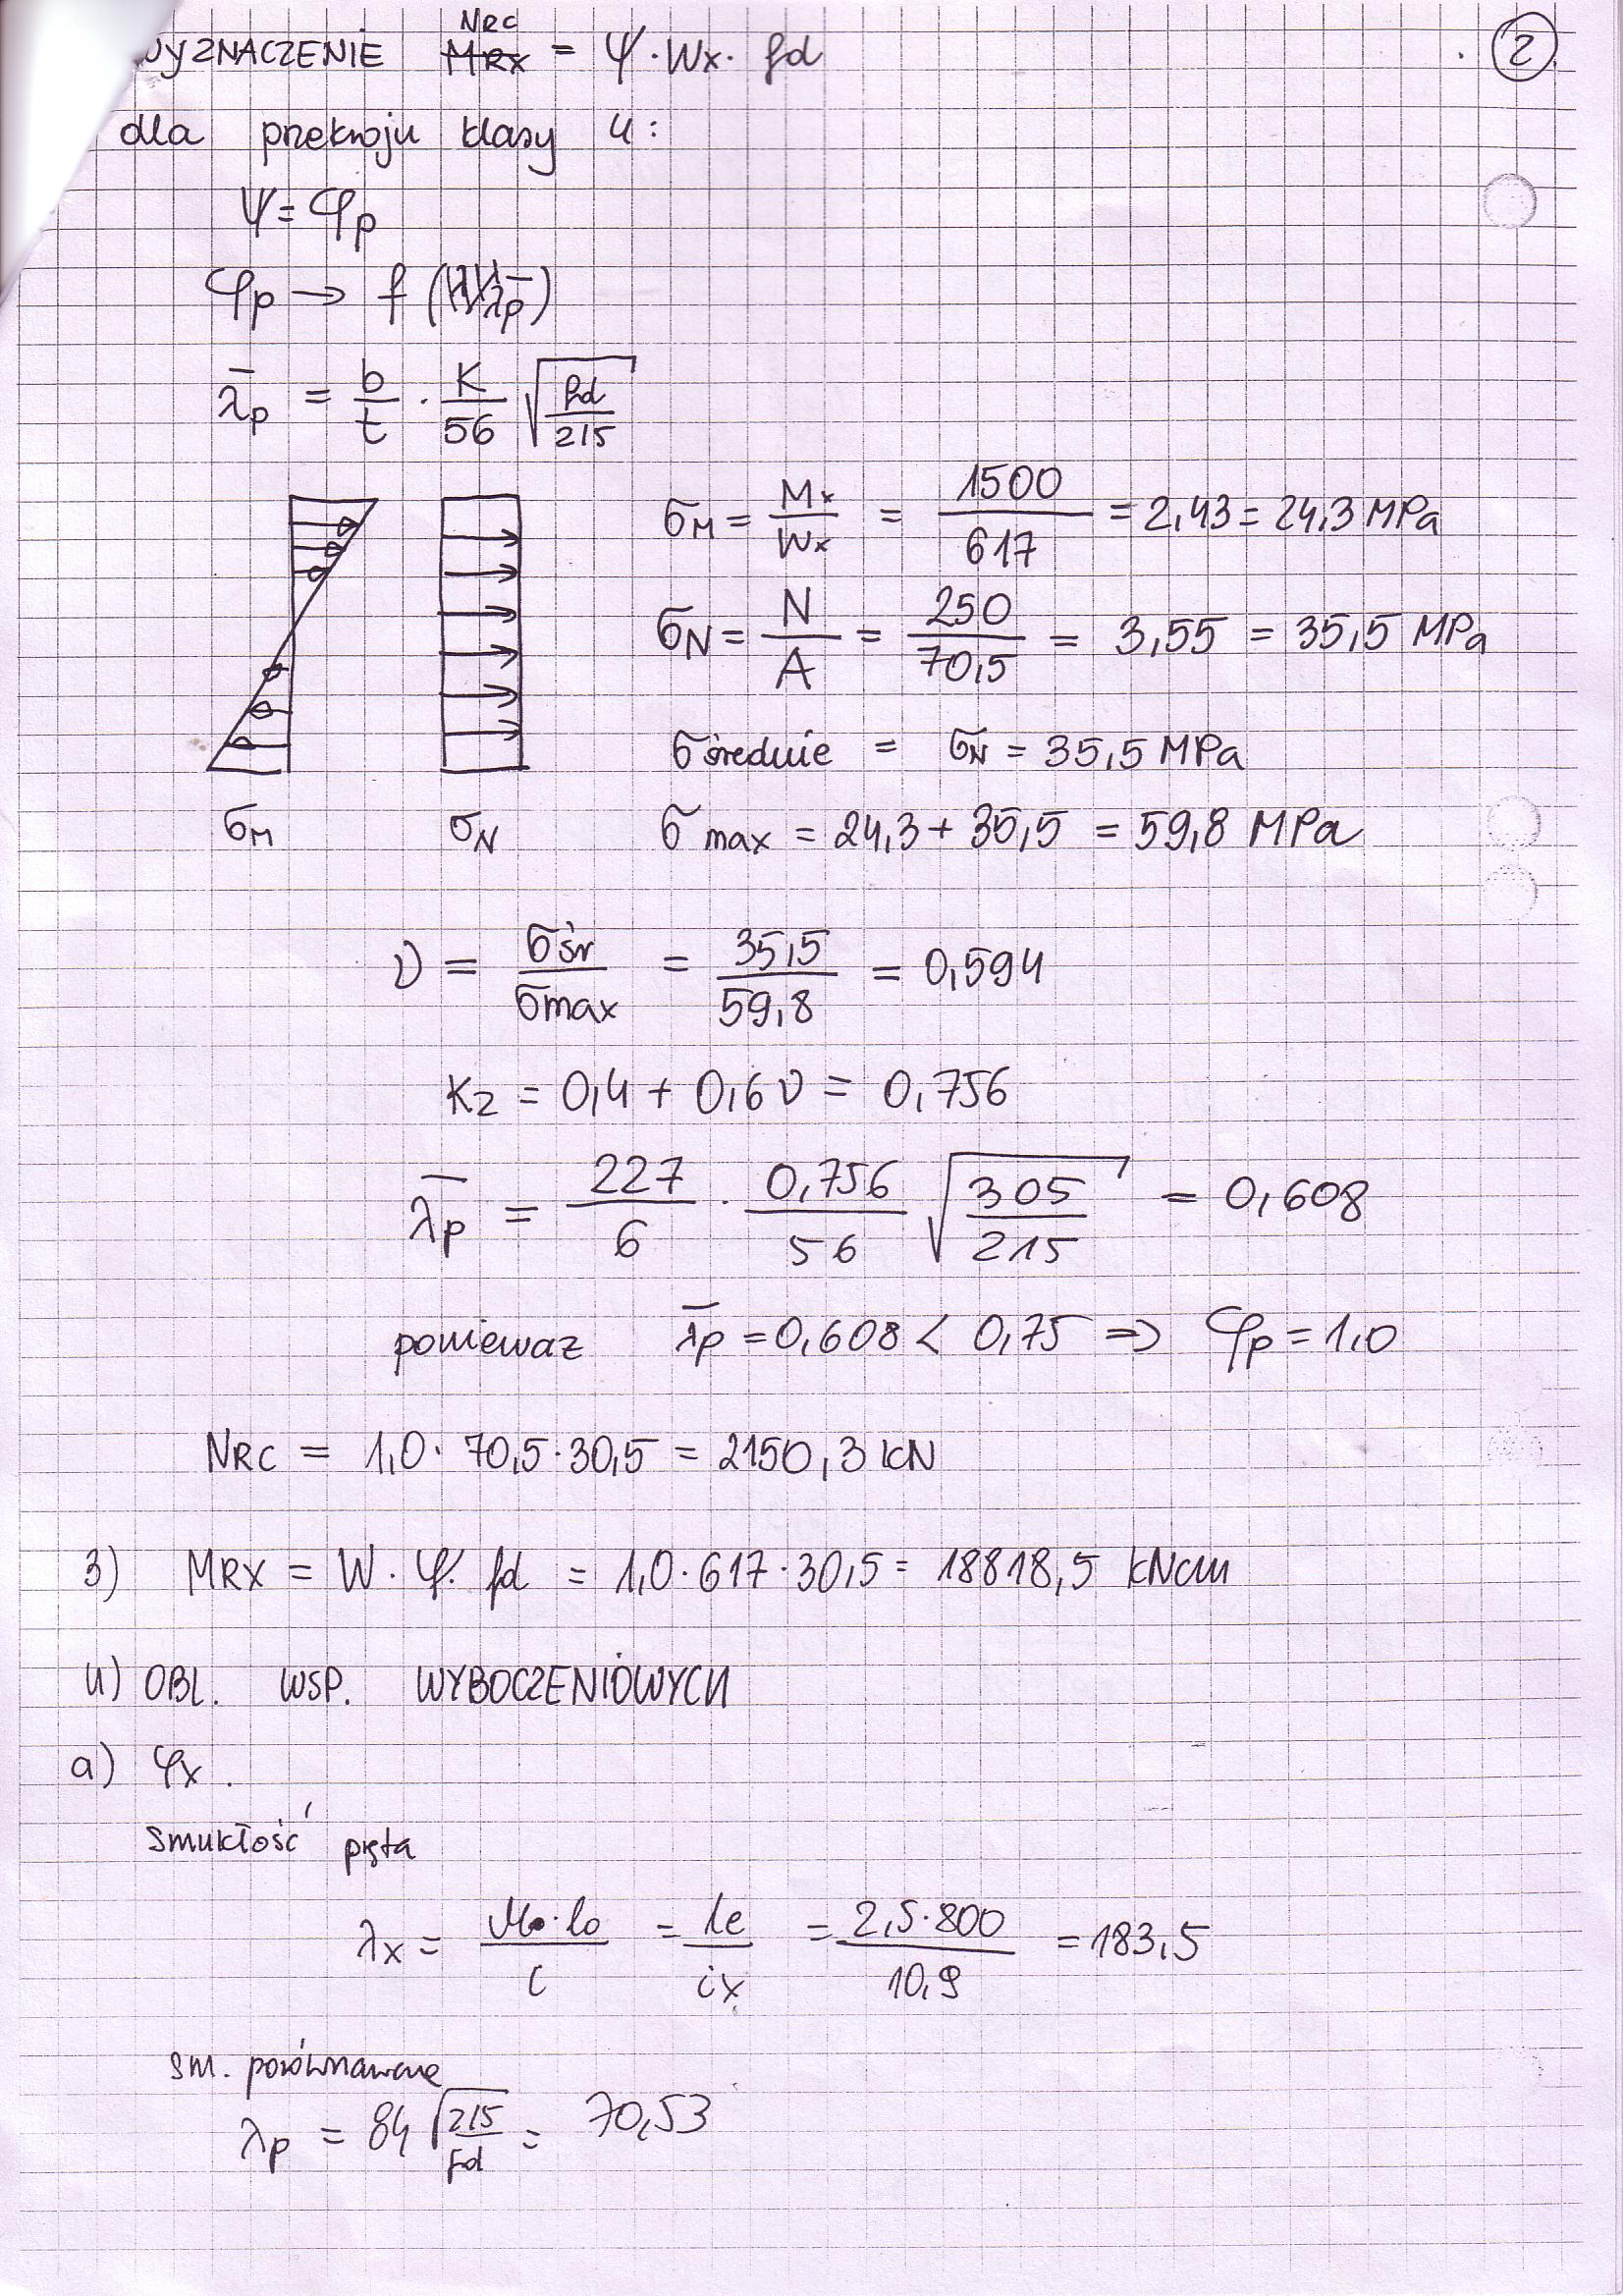 WYZNACZENIE NRC MRX = ψ · Wx · fd
2
dla przekroju klasy 4:
ψ = φp
φp → f ( λ̄p )
λ̄p = b/t · K/56 √(fd/215)
σM = Mx/Wx = 1500/617 = 2,43 = 24,3 MPa
σN = N/A = 250/70,5 = 3,55 = 35,5 MPa
σ średnie = σN = 35,5 MPa
σM σN σ max = 24,3 + 35,5 = 59,8 MPa
ν = σśr/σmax = 35,5/59,8 = 0,594
K2 = 0,4 + 0,6 ν = 0,756
λ̄p = 227/6 · 0,756/56 √(305/215) = 0,608
ponieważ λ̄p = 0,608 < 0,75 ⇒ φp = 1,0
NRC = 1,0 · 70,5 · 30,5 = 2150,3 kN
3) MRX = W · ψ · fd = 1,0 · 617 · 30,5 = 18818,5 kNcm
4) OBL. WSP. WYBOCZENIOWYCH
a) φx .
smukłość pręta
λx = μ · lo/i = le/ix = 2,5 · 800/10,9 = 183,5
sm. porównawcze
λp = 84 √(215/fd) = 70,53